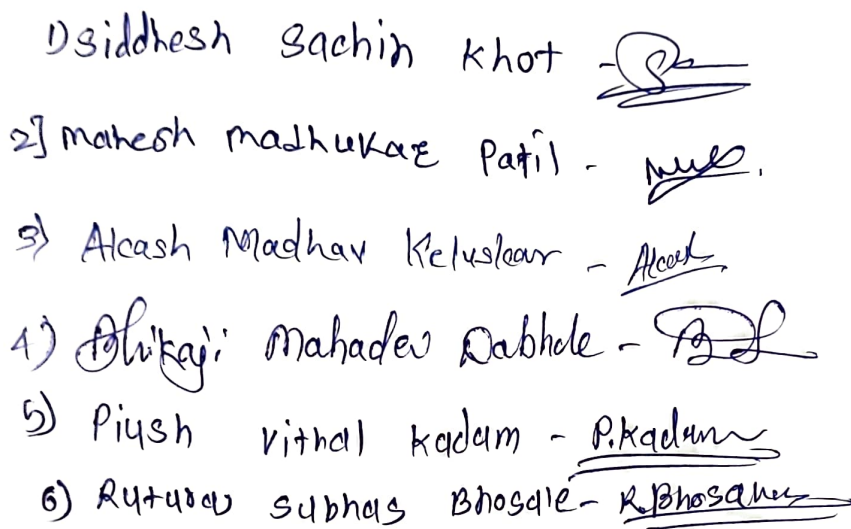 1) Siddhesh Sachin Khot -
2] Mahesh Madhukar Patil -
3) Akash Madhav Keluskar - Akash
4) Bhikaji Mahadev Dabhole -
5) Piyush Vithal Kadam - P.Kadam
6) Ruturaj Subhas Bhosale - R.Bhosale